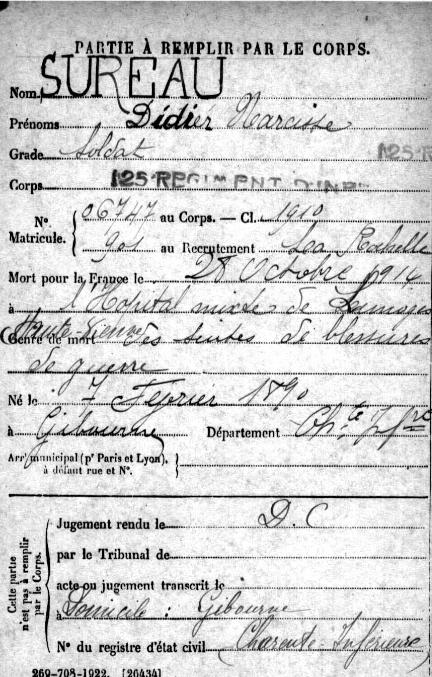 PARTIE À REMPLIR PAR LE CORPS.
Nom. SUREAU
Prénoms Didier Narcisse
Grade Soldat
125 R
Corps 125 REGIMENT D'INF
N° Matricule. { 06747 au Corps. — Cl. 1910
901 au Recrutement La Rochelle
Mort pour la France le 28 Octobre 1914
à l'Hôpital mixte de Limoges
(Haute-Vienne)
Genre de mort des suites de blessures
de guerre
Né le 7 Février 1890
à Gibourne Département Ch.te Infre
Arrt municipal (pr Paris et Lyon),
à défaut rue et N°.
Cette partie n'est pas à remplir par le Corps.
Jugement rendu le D. C
par le Tribunal de
acte ou jugement transcrit le
à Domicile : Gibourne
N° du registre d'état civil (Charente Inférieure)
269-708-1922. [26434]